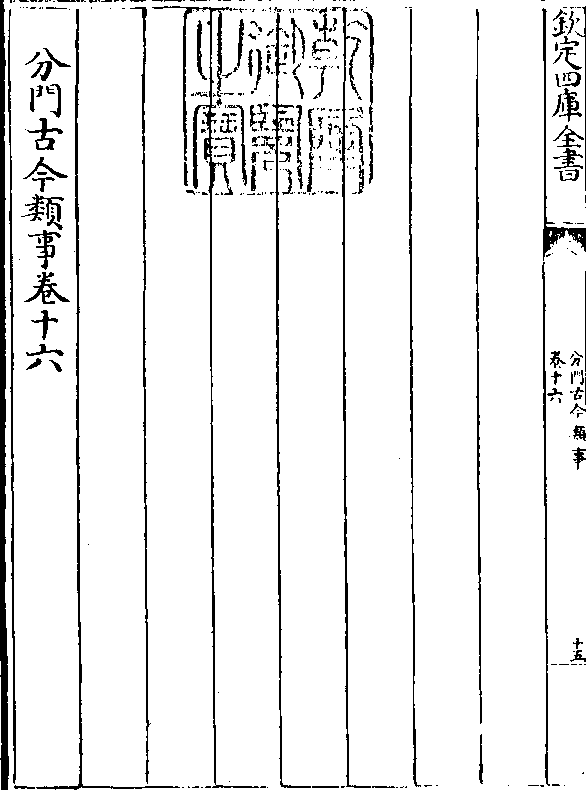 欽定四庫全書
分門古今類事
卷十六
十五
乾隆御覽之寶
分門古今類事卷十六